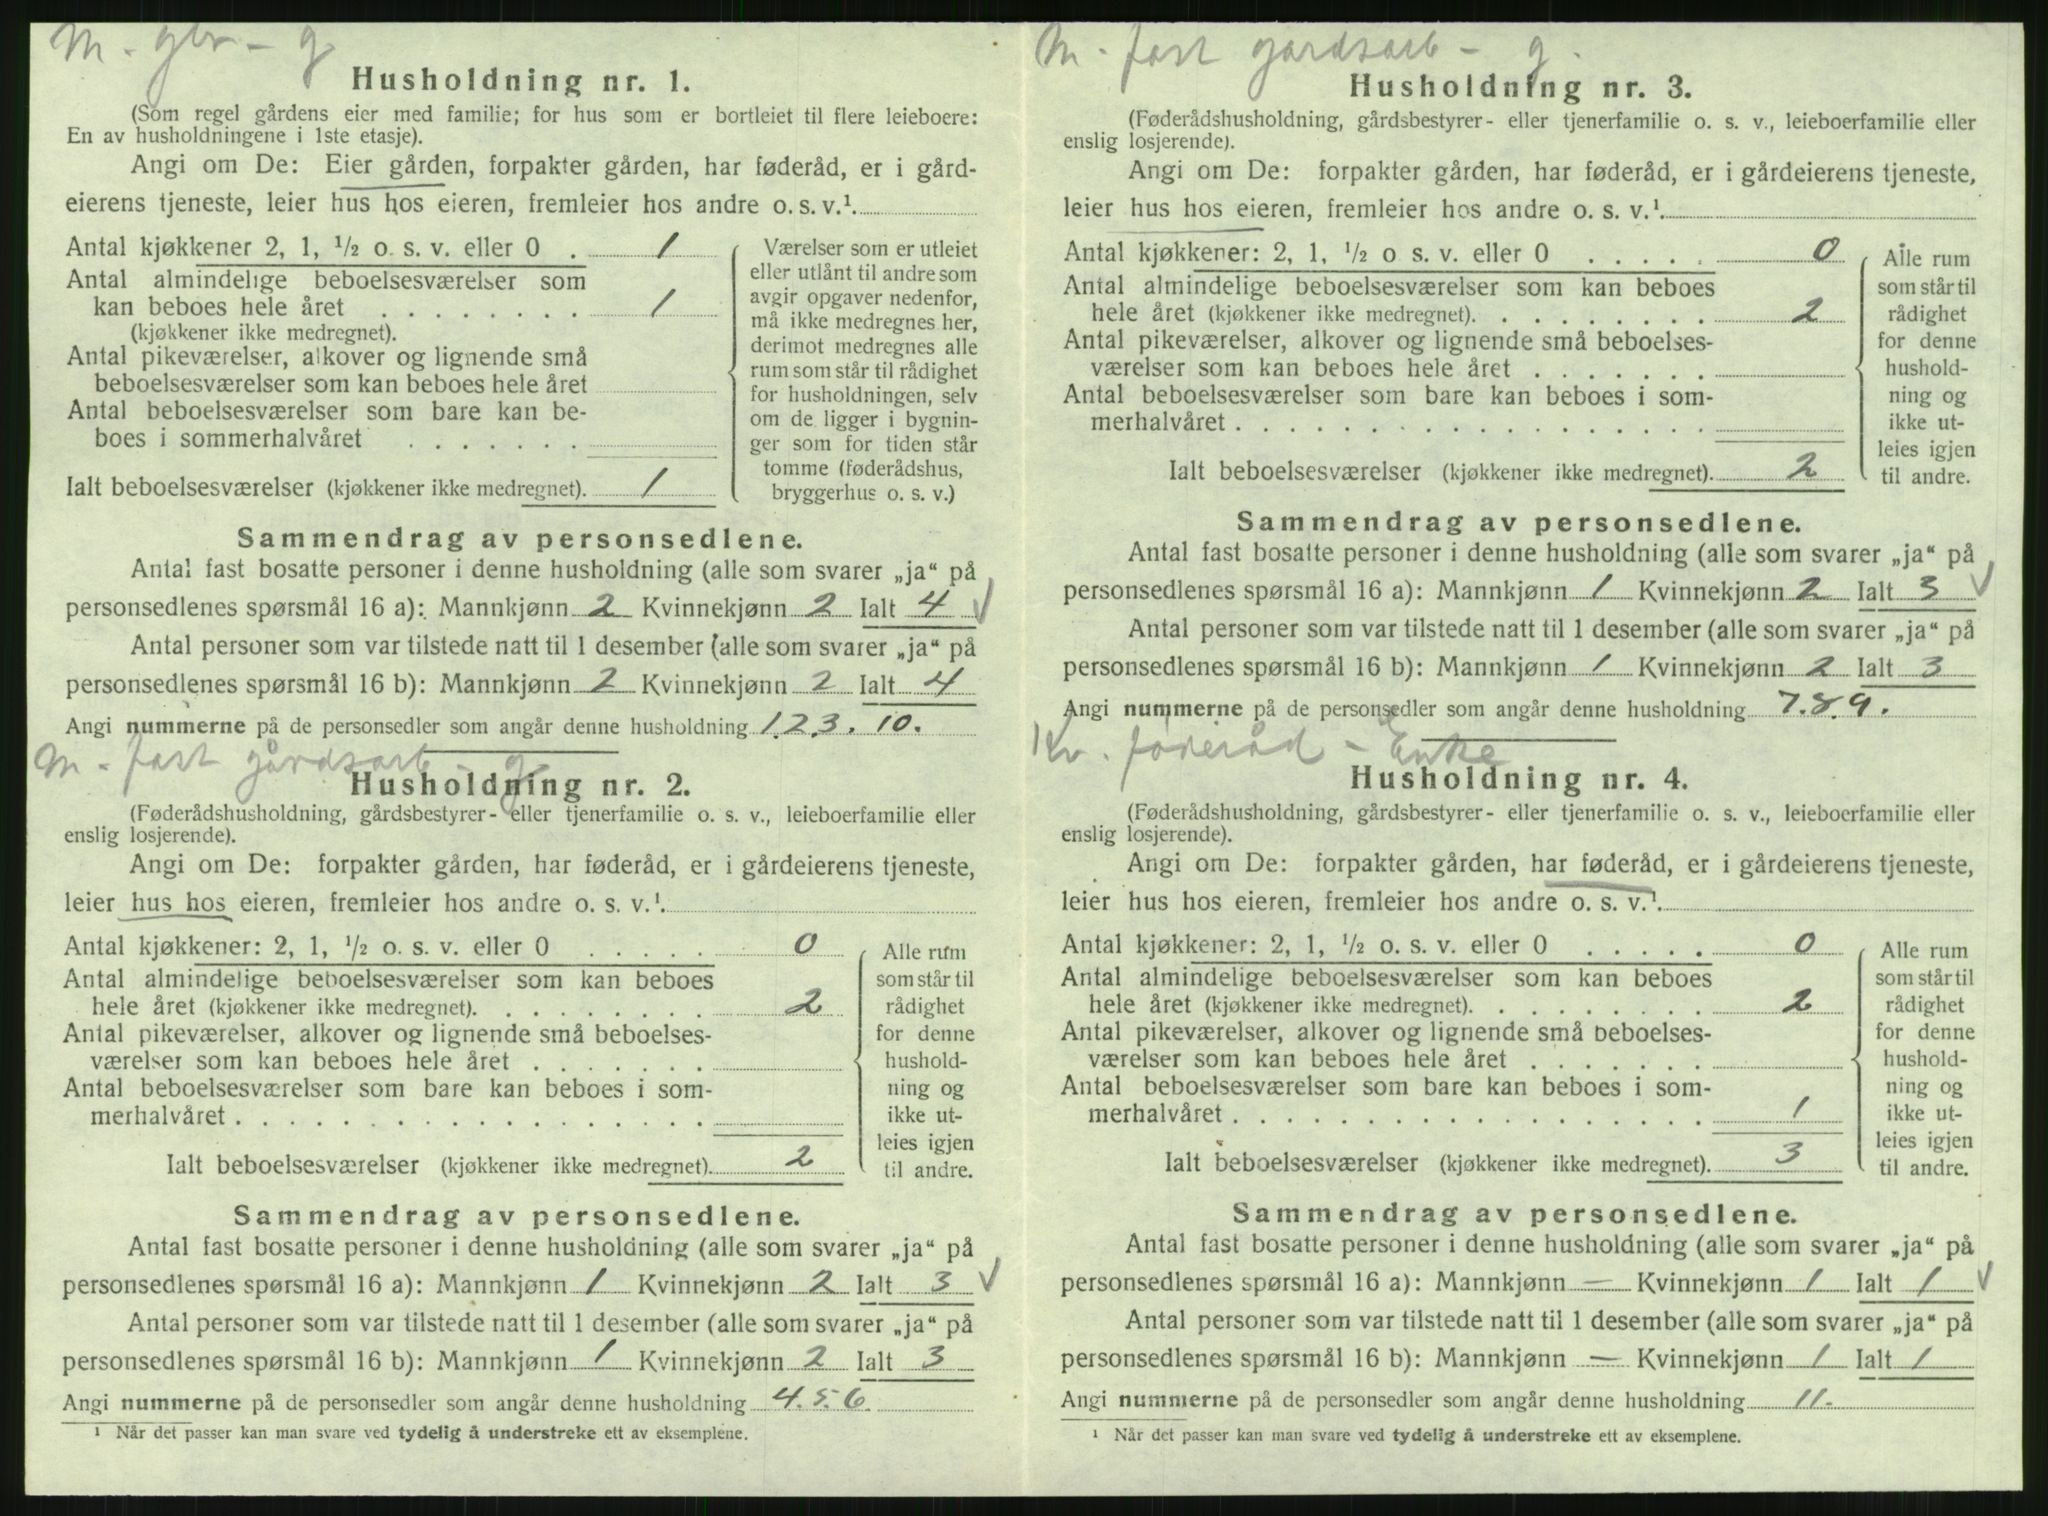 M. gbr - g
Husholdning nr. 1.
(Som regel gårdens eier med familie; for hus som er bortleiet til flere leieboere:
En av husholdningene i 1ste etasje).
Angi om De: Eier gården, forpakter gården, har føderåd, er i gård-
eierens tjeneste, leier hus hos eieren, fremleier hos andre o. s. v.¹.
Antal kjøkkener 2, 1, ½ o. s. v. eller 0 . 1
Antal almindelige beboelsesværelser som
kan beboes hele året . . . . . . . . 1
(kjøkkener ikke medregnet).
Antal pikeværelser, alkover og lignende små
beboelsesværelser som kan beboes hele året
Antal beboelsesværelser som bare kan be-
boes i sommerhalvåret . . . . . . .
Ialt beboelsesværelser (kjøkkener ikke medregnet). 1
Værelser som er utleiet
eller utlånt til andre som
avgir opgaver nedenfor,
må ikke medregnes her,
derimot medregnes alle
rum som står til rådighet
for husholdningen, selv
om de ligger i bygnin-
ger som for tiden står
tomme (føderådshus,
bryggerhus o. s. v.)
Sammendrag av personsedlene.
Antal fast bosatte personer i denne husholdning (alle som svarer „ja“ på
personsedlenes spørsmål 16 a): Mannkjønn 2 Kvinnekjønn 2 Ialt 4 √
Antal personer som var tilstede natt til 1 desember (alle som svarer „ja“ på
personsedlenes spørsmål 16 b): Mannkjønn 2 Kvinnekjønn 2 Ialt 4
Angi nummerne på de personsedler som angår denne husholdning 1.2.3. 10.
M. fast gårdsarb - g
Husholdning nr. 2.
(Føderådshusholdning, gårdsbestyrer- eller tjenerfamilie o. s. v., leieboerfamilie eller
enslig losjerende).
Angi om De: forpakter gården, har føderåd, er i gårdeierens tjeneste,
leier hus hos eieren, fremleier hos andre o. s. v.¹.
Antal kjøkkener: 2, 1, ½ o. s. v. eller 0 . . . . . 0
Antal almindelige beboelsesværelser som kan beboes
hele året (kjøkkener ikke medregnet). . . . . . . . . 2
Antal pikeværelser, alkover og lignende små beboelses-
værelser som kan beboes hele året . . . . . . .
Antal beboelsesværelser som bare kan beboes i som-
merhalvåret . . . . . . . . . . . . . . . . . .
Ialt beboelsesværelser (kjøkkener ikke medregnet). 2
Alle rum
som står til
rådighet
for denne
hushold-
ning og
ikke ut-
leies igjen
til andre.
Sammendrag av personsedlene.
Antal fast bosatte personer i denne husholdning (alle som svarer „ja“ på
personsedlenes spørsmål 16 a): Mannkjønn 1 Kvinnekjønn 2 Ialt 3 √
Antal personer som var tilstede natt til 1 desember (alle som svarer „ja“ på
personsedlenes spørsmål 16 b): Mannkjønn 1 Kvinnekjønn 2 Ialt 3
Angi nummerne på de personsedler som angår denne husholdning 4.5.6.
¹ Når det passer kan man svare ved tydelig å understreke ett av eksemplene.
M - fast gårdsarb - g.
Husholdning nr. 3.
(Føderådshusholdning, gårdsbestyrer- eller tjenerfamilie o. s. v., leieboerfamilie eller
enslig losjerende).
Angi om De: forpakter gården, har føderåd, er i gårdeierens tjeneste,
leier hus hos eieren, fremleier hos andre o. s. v.¹.
Antal kjøkkener: 2, 1, ½ o s. v. eller 0 . . . . . 0
Antal almindelige beboelsesværelser som kan beboes
hele året (kjøkkener ikke medregnet). . . . . . . . . 2
Antal pikeværelser, alkover og lignende små beboelses-
værelser som kan beboes hele året . . . . . . .
Antal beboelsesværelser som bare kan beboes i som-
merhalvåret . . . . . . . . . . . . . . . . . .
Ialt beboelsesværelser (kjøkkener ikke medregnet). 2
Alle rum
som står til
rådighet
for denne
hushold-
ning og
ikke ut-
leies igjen
til andre.
Sammendrag av personsedlene.
Antal fast bosatte personer i denne husholdning (alle som svarer „ja“ på
personsedlenes spørsmål 16 a): Mannkjønn 1 Kvinnekjønn 2 Ialt 3 √
Antal personer som var tilstede natt til 1 desember (alle som svarer „ja“ på
personsedlenes spørsmål 16 b): Mannkjønn 1 Kvinnekjønn 2 Ialt 3
Angi nummerne på de personsedler som angår denne husholdning 7.8.9.
Kv. føderåd - Enke
Husholdning nr. 4.
(Føderådshusholdning, gårdsbestyrer- eller tjenerfamilie o. s. v., leieboerfamilie eller
enslig losjerende).
Angi om De: forpakter gården, har føderåd, er i gårdeierens tjeneste,
leier hus hos eieren, fremleier hos andre o. s. v.¹.
Antal kjøkkener: 2, 1, ½ o. s. v. eller 0 . . . . . 0
Antal almindelige beboelsesværelser som kan beboes
hele året (kjøkkener ikke medregnet). . . . . . . . . 2
Antal pikeværelser, alkover og lignende små beboelses-
værelser som kan beboes hele året . . . . . . .
Antal beboelsesværelser som bare kan beboes i som-
merhalvåret . . . . . . . . . . . . . . . . . . 1
Ialt beboelsesværelser (kjøkkener ikke medregnet). 3
Alle rum
som står til
rådighet
for denne
hushold-
ning og
ikke ut-
leies igjen
til andre.
Sammendrag av personsedlene.
Antal fast bosatte personer i denne husholdning (alle som svarer „ja“ på
personsedlenes spørsmål 16 a): Mannkjønn — Kvinnekjønn 1 Ialt 1 √
Antal personer som var tilstede natt til 1 desember (alle som svarer „ja“ på
personsedlenes spørsmål 16 b): Mannkjønn — Kvinnekjønn 1 Ialt 1
Angi nummerne på de personsedler som angår denne husholdning 11.
¹ Når det passer kan man svare ved tydelig å understreke ett av eksemplene.